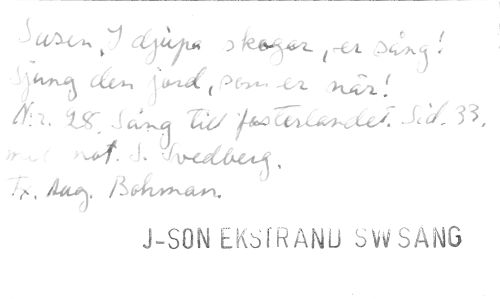 Susen, I djupa skogar, er sång!
Sjung den jord, som er når!
N:r. 28. Sång till fosterlandet. Sid. 33.
med not. S. Svedberg.
Tr. Aug. Bohman.
J-SON EKSTRAND SWSANG